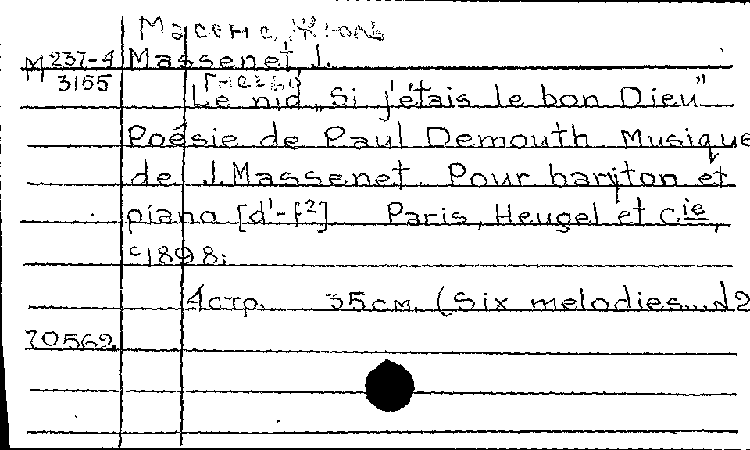 Масснэ, Жюль
М 237-4 Massenet, J.
3155 Гнездо
Le nid „Si j'étais le bon Dieu"
Poésie de Paul Demouth. Musique
de J. Massenet. Pour baryton et
piano [d¹-f²]. Paris, Heugel et Cie,
c1898.
4стр. 35см. (Six melodies...
70569